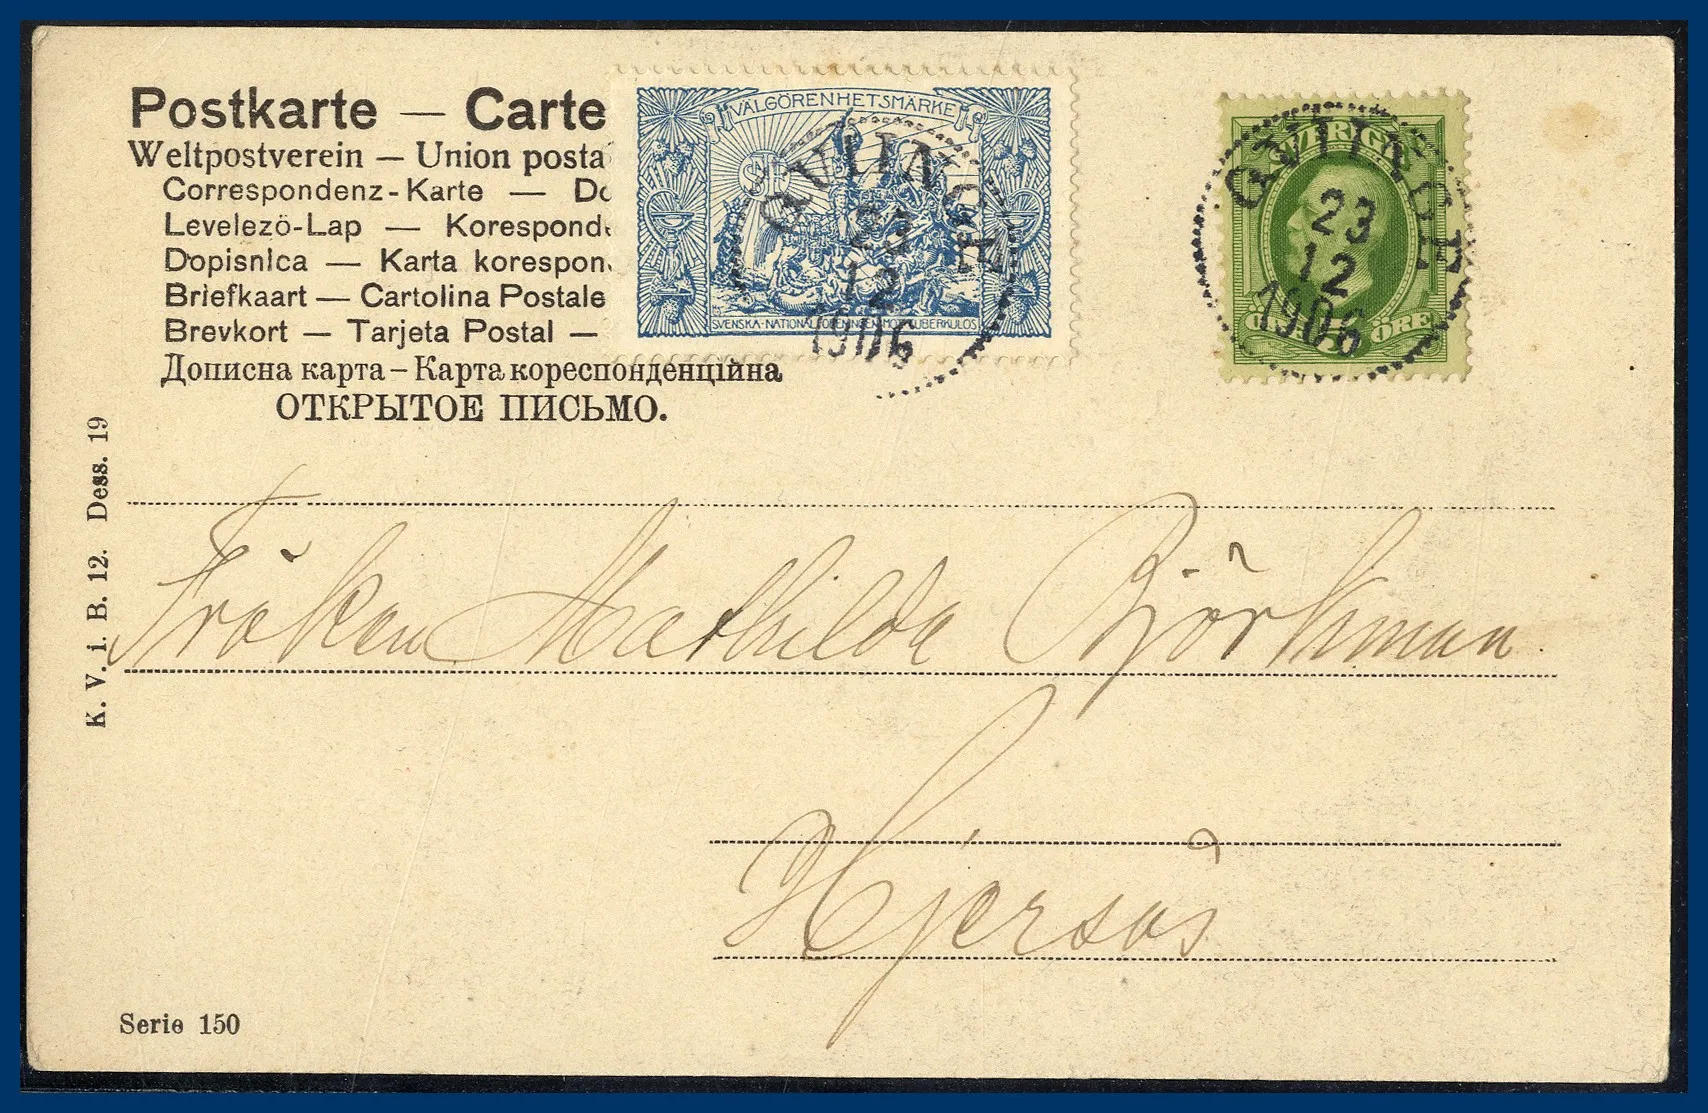 Postkarte — Carte
Weltpostverein — Union posta
Correspondenz-Karte — Do
Levelező-Lap — Korespond
Dopisnica — Karta korespon
Briefkaart — Cartolina Postale
Brevkort — Tarjeta Postal —
Дописна карта – Карта кореспонденційна
ОТКРЫТОЕ ПИСЬМО.
VÄLGÖRENHETSMÄRKE
SVENSKA·NATIONALFÖRENINGEN·MOT·TUBERKULOS
QVIINGE
23
12
1906
SVERIGE
ÖRE
QVIINGE
23
12
1906
K. V. i. B. 12. Dess. 19
Fröken Mathilda Björkman.
Hjersås
Serie 150